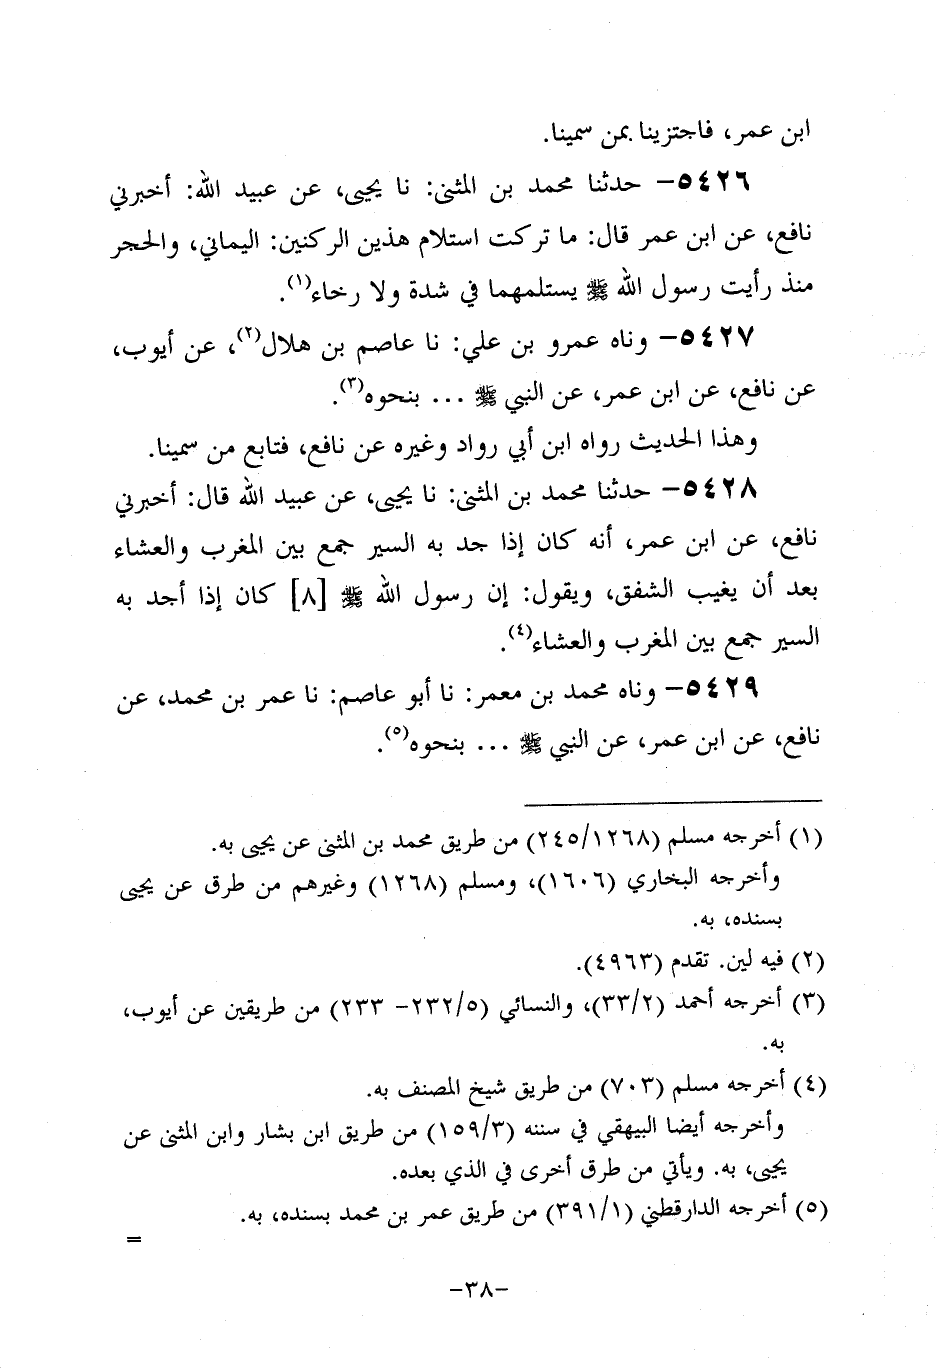 ابن عمر، فاجتزينا بمن سمينا.
٥٤٢٦- حدثنا محمد بن المثنى: نا يحيى، عن عبيد الله: أخبرني
نافع، عن ابن عمر قال: ما تركت استلام هذين الركنين: اليماني، والحجر
منذ رأيت رسول الله ﷺ يستلمهما في شدة ولا رخاء(١).
٥٤٢٧- وناه عمرو بن علي: نا عاصم بن هلال(٢)، عن أيوب،
عن نافع، عن ابن عمر، عن النبي ﷺ ... بنحوه(٣).
وهذا الحديث رواه ابن أبي رواد وغيره عن نافع، فتابع من سمينا.
٥٤٢٨- حدثنا محمد بن المثنى: نا يحيى، عن عبيد الله قال: أخبرني
نافع، عن ابن عمر، أنه كان إذا جد به السير جمع بين المغرب والعشاء
بعد أن يغيب الشفق، ويقول: إن رسول الله ﷺ [٨] كان إذا أجد به
السير جمع بين المغرب والعشاء(٤).
٥٤٢٩- وناه محمد بن معمر: نا أبو عاصم: نا عمر بن محمد، عن
نافع، عن ابن عمر، عن النبي ﷺ ... بنحوه(٥).
(١) أخرجه مسلم (٢٤٥/١٢٦٨) من طريق محمد بن المثنى عن يحيى به.
وأخرجه البخاري (١٦٠٦)، ومسلم (١٢٦٨) وغيرهم من طرق عن يحيى
بسنده، به.
(٢) فيه لين. تقدم (٤٩٦٣).
(٣) أخرجه أحمد (٣٣/٢)، والنسائي (٢٣٢/٥- ٢٣٣) من طريقين عن أيوب،
به.
(٤) أخرجه مسلم (٧٠٣) من طريق شيخ المصنف به.
وأخرجه أيضا البيهقي في سننه (١٥٩/٣) من طريق ابن بشار وابن المثنى عن
يحيى، به. ويأتي من طرق أخرى في الذي بعده.
(٥) أخرجه الدارقطني (٣٩١/١) من طريق عمر بن محمد بسنده، به.
=
-٣٨-